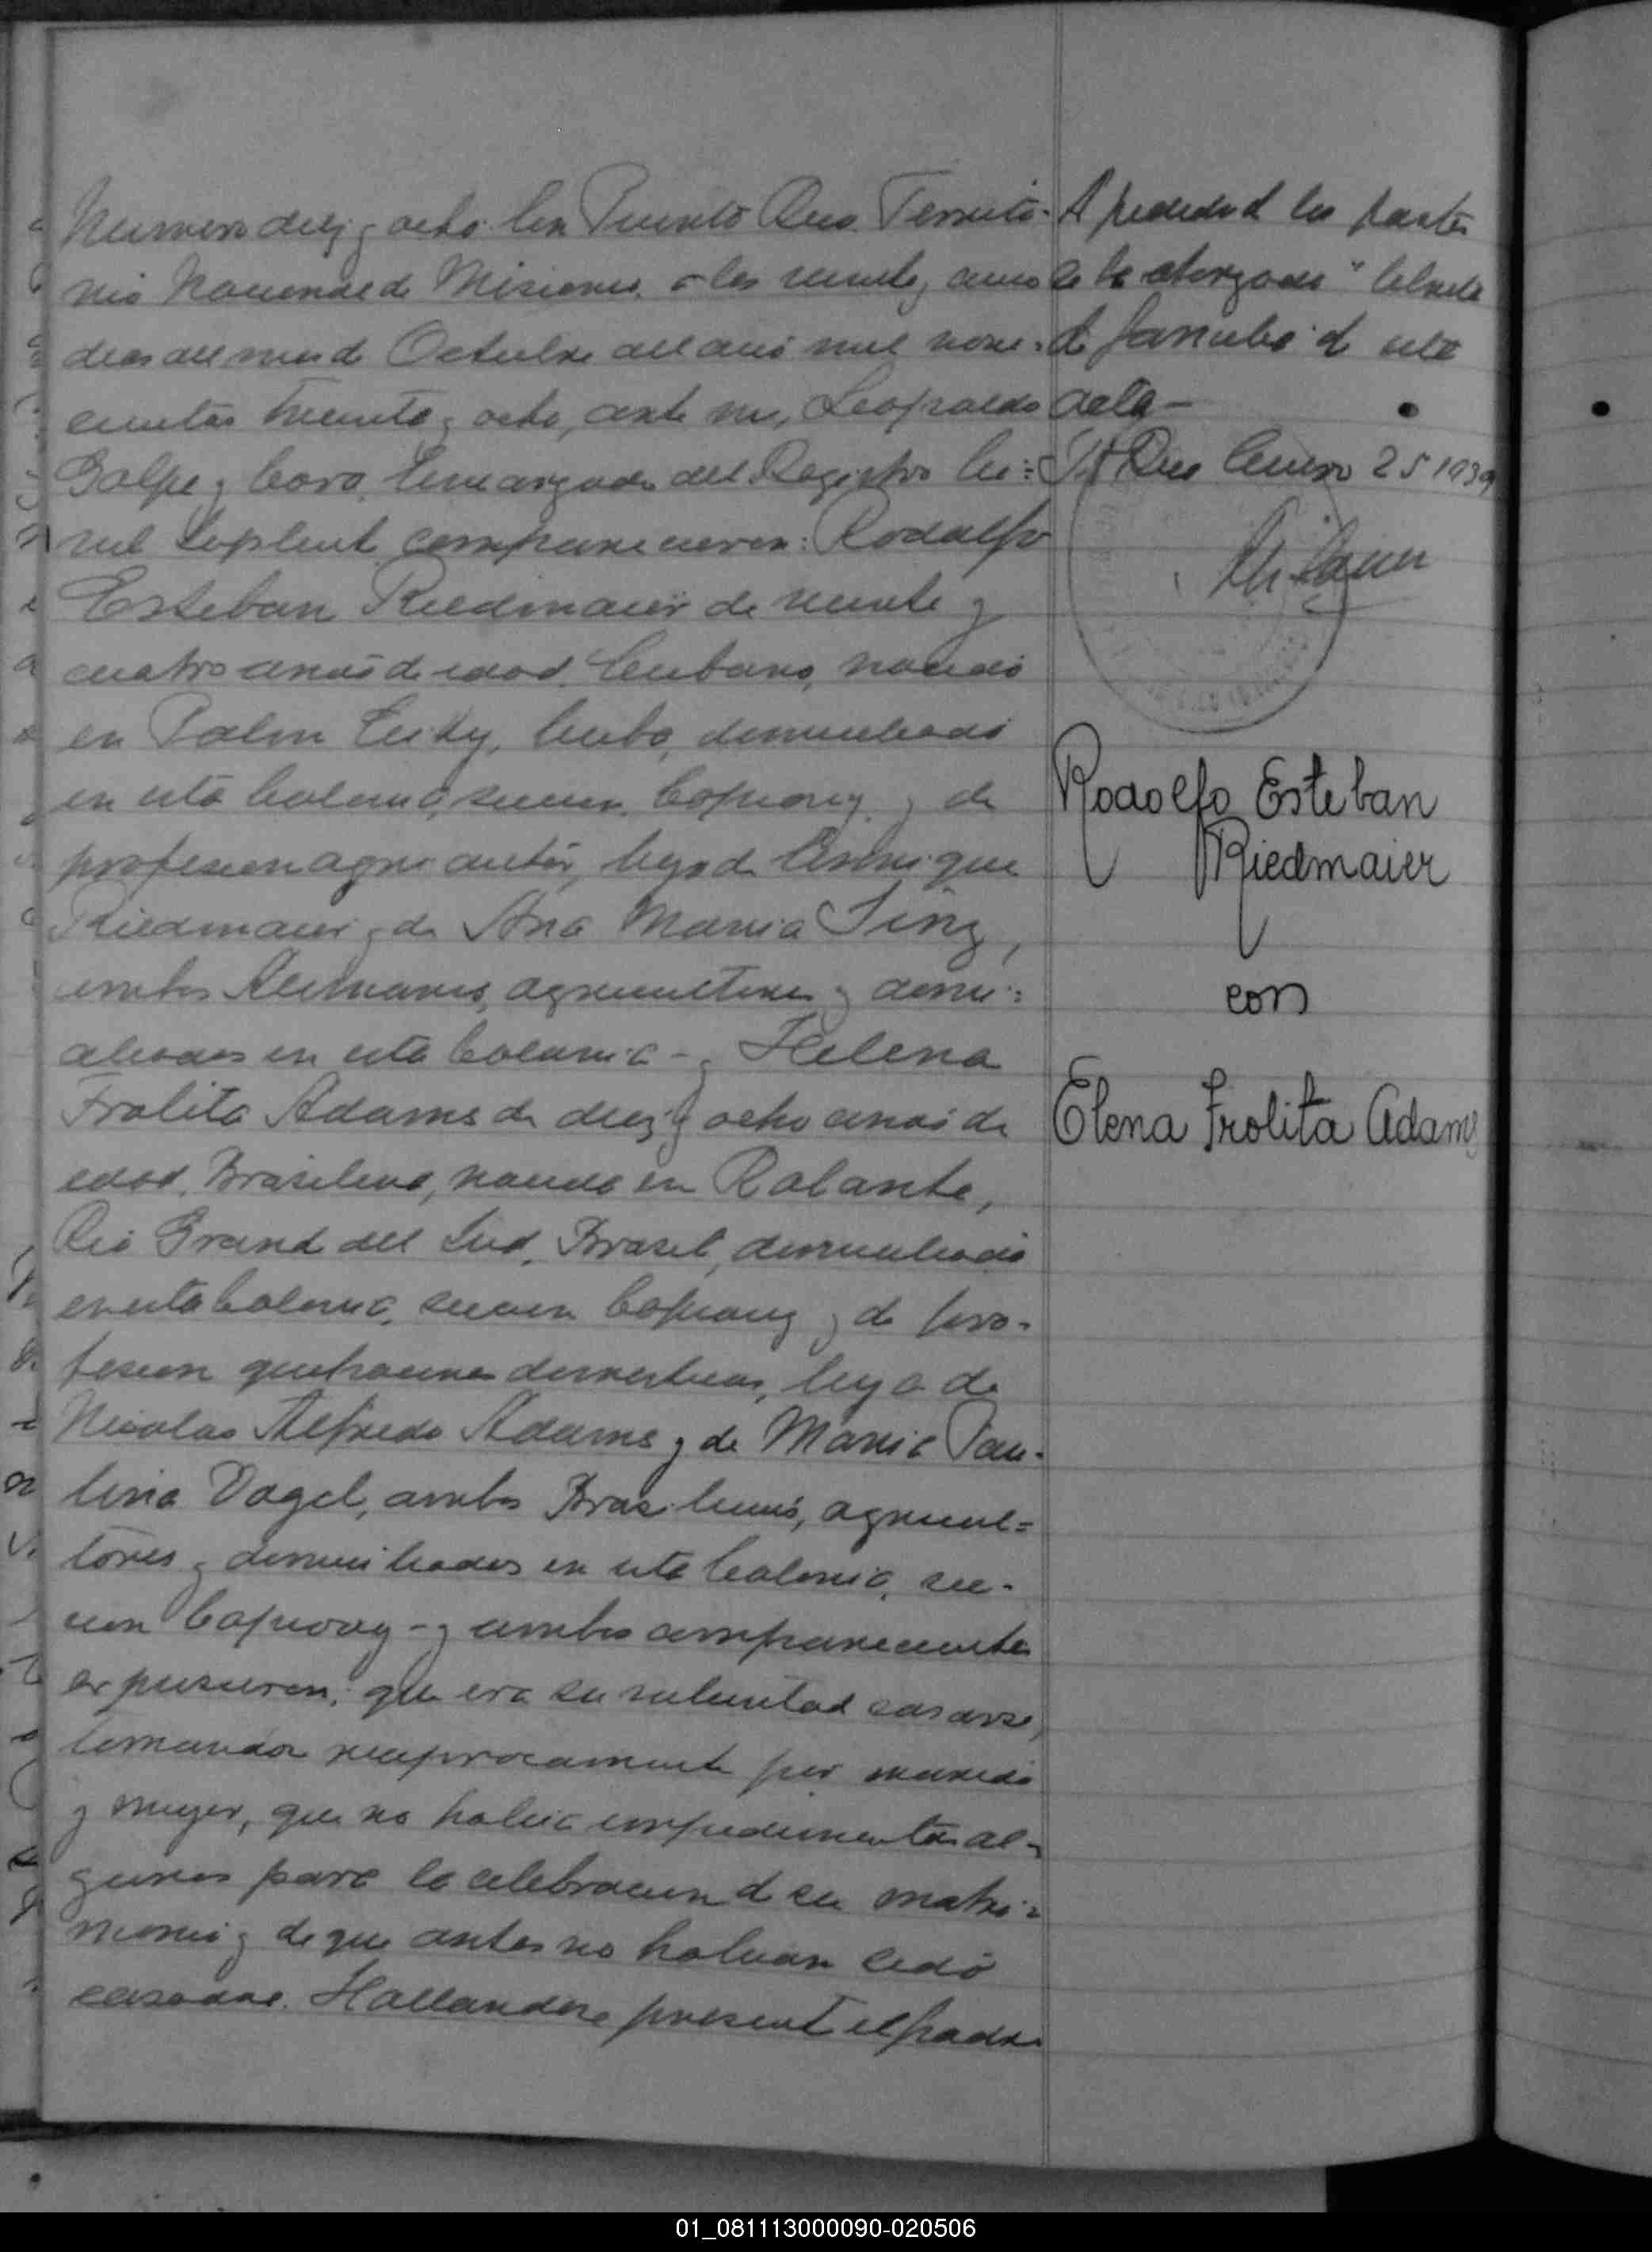 Numero diez y ocho. En Puerto Rico Territo-
rio Nacional de Misiones a los veinte y cinco
dias del mes de Octubre del año mil nove-
cientos treinta y ocho, ante mi, Leopoldo
Golpe y Cora, Encargado del Registro Ci=
vil Suplente comparecieron: Rodolfo
Esteban Riedmaier de veinte y
cuatro años de edad, Cubano, nacido
en Palm City, Cuba, domiciliado
en esta Colonia, seccion Capiovy y de
profesion agricultor, hijo de Enrique
Riedmaier y de Ana Maria
ambos Alemanes, agricultores y domi=
ciliados en esta Colonia - y Helena
Frolita Adams de diez y ocho años de
edad, Brasilena, nacida en Rolante,
Rio Grand del Sud, Brasil, domiciliada
en esta Colonia, seccion Capiovy y de pro-
fesion quehaceres domesticos, hija de
Nicolas Alfredo Adams y de Maria Pau-
lina Vogel, ambos Brasilenos, agricul=
tores y domiciliados en esta Colonia, sec-
cion Capiovy - y ambos comparecientes
expusieron: que era su voluntad casarse,
tomandose reciprocamente por marido
y mujer, que no habia impedimentos al-
gunos para la celebracion de su matri=
monio y de que antes no habian sido
casados. Hallandose present el padre
A pedido d las partes
se ha otorgado "Libreta
de familia" d esta
acta-
Pto Rico Enero 25 1939
Rodolfo Esteban
Riedmaier
con
Elena Frolita Adams
01_081113000090-020506